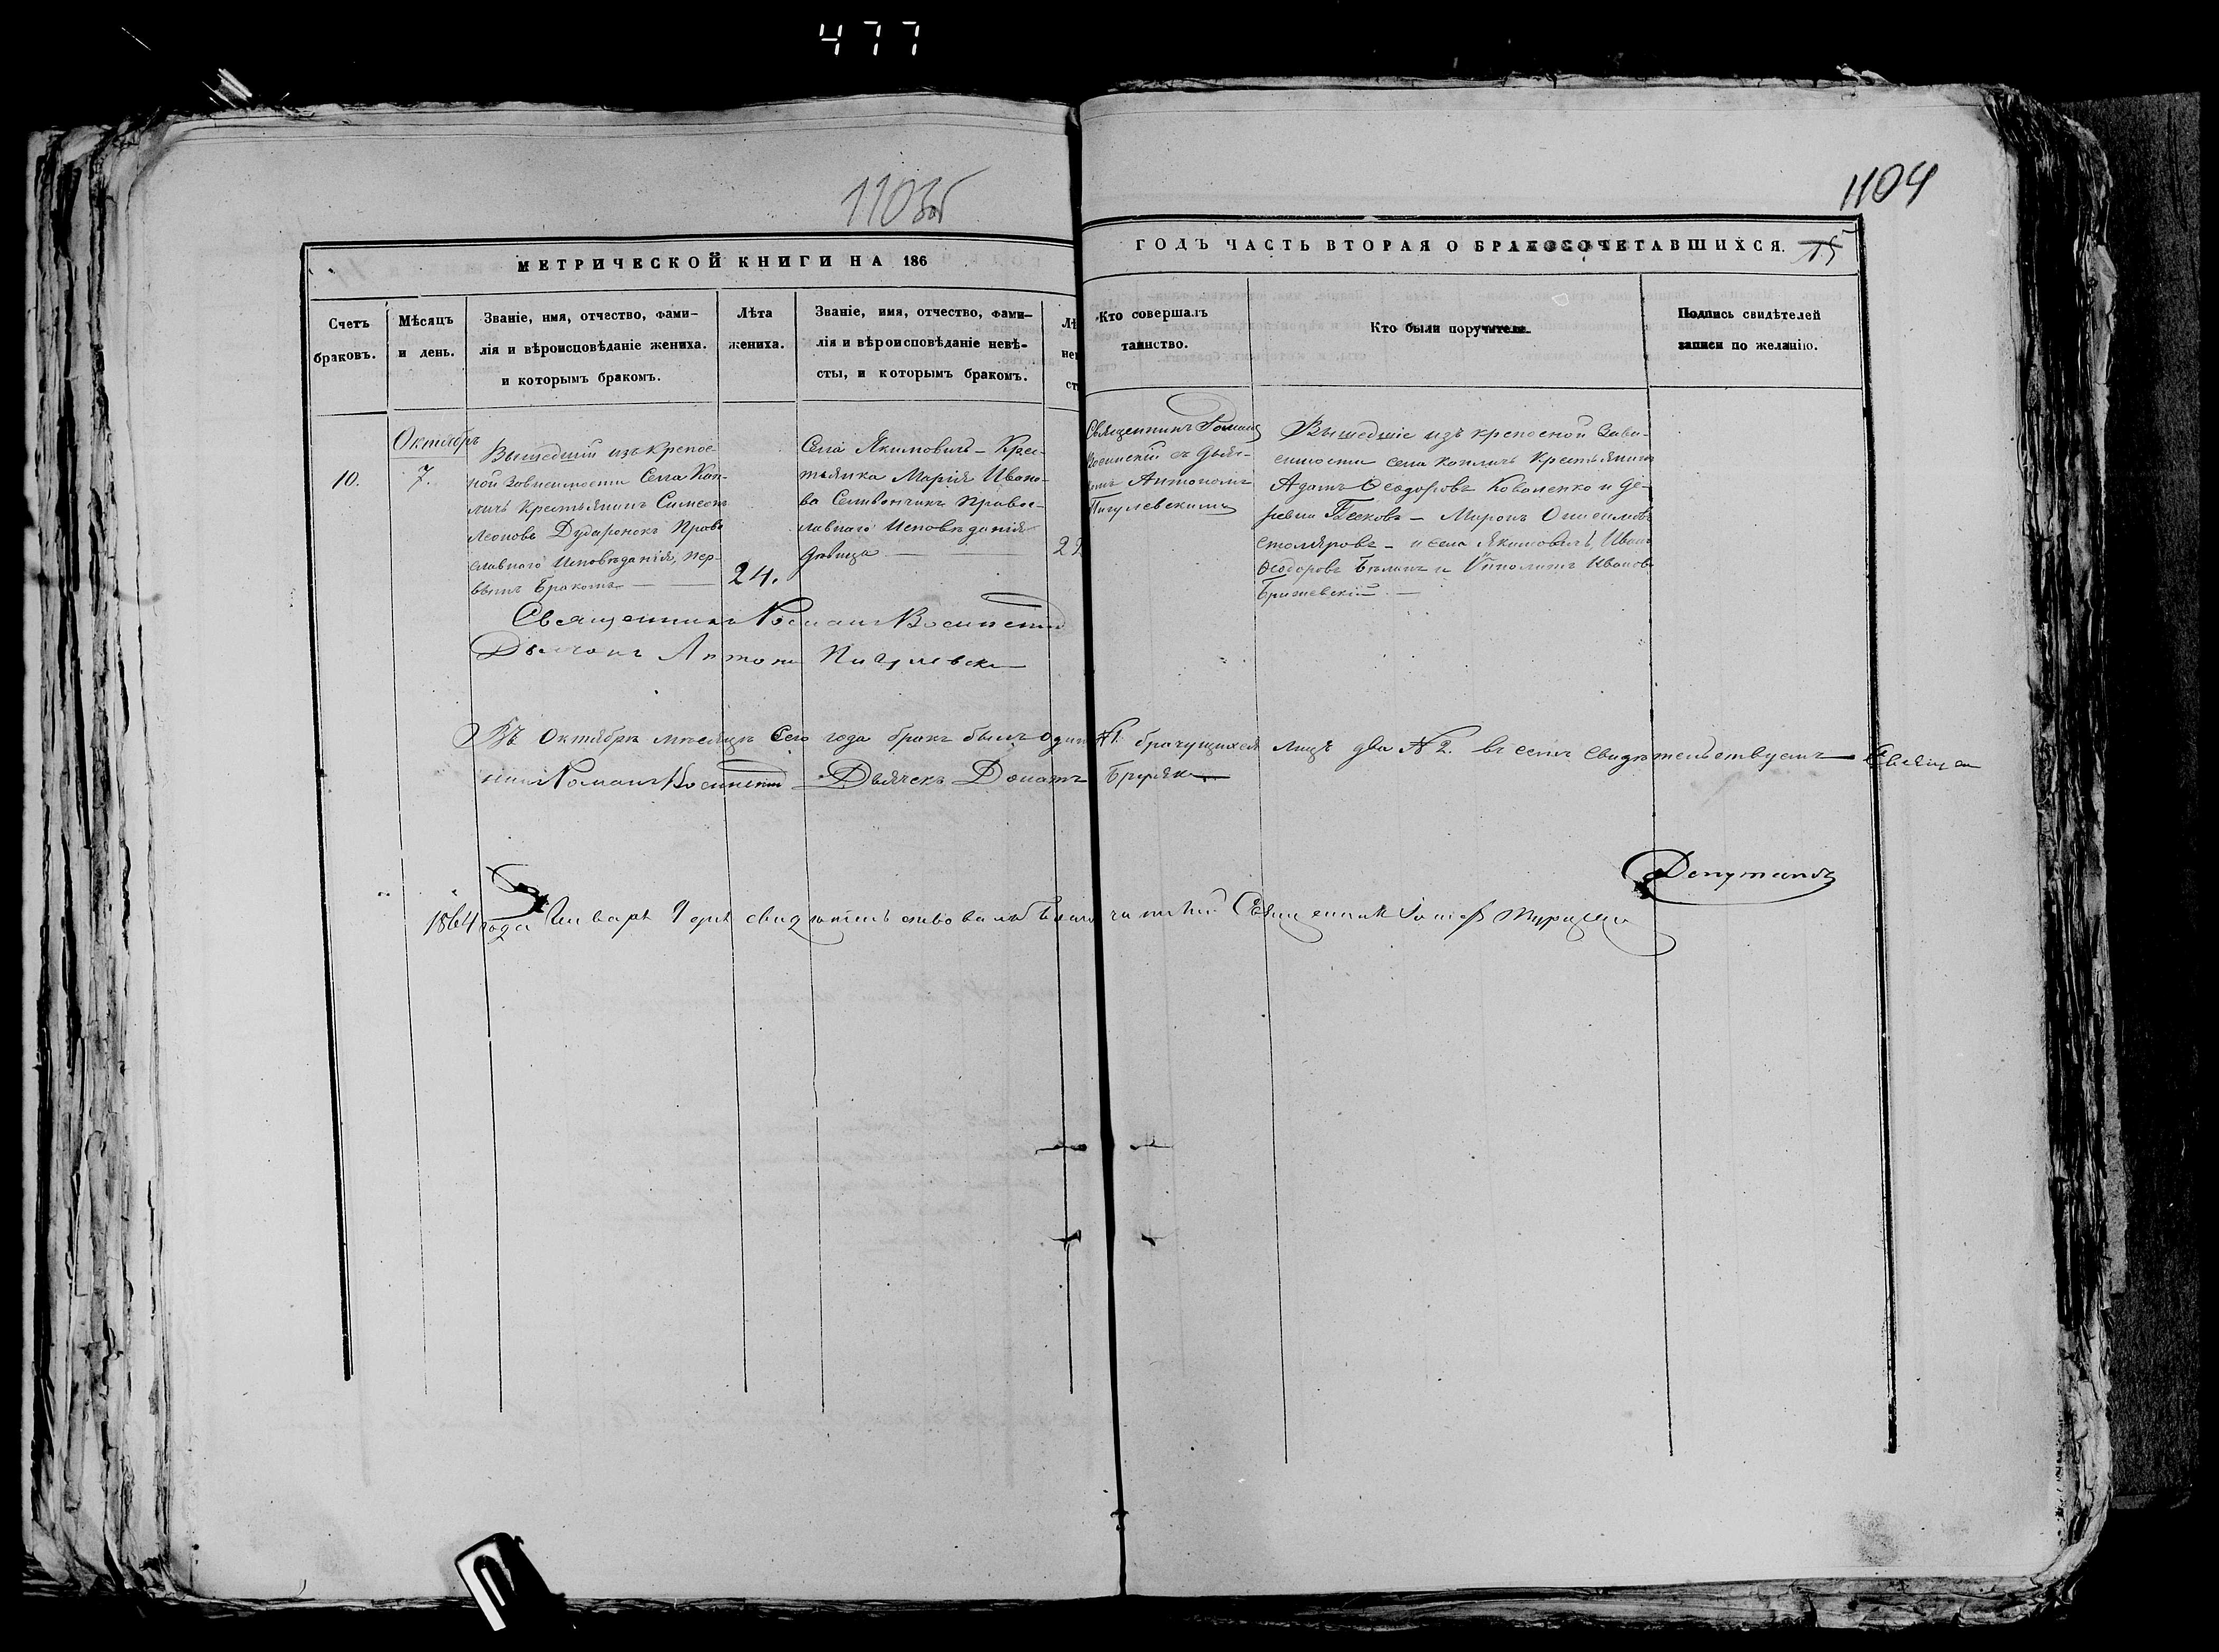 477
1103об
1104
МЕТРИЧЕСКОЙ КНИГИ НА 186
ГОДЪ ЧАСТЬ ВТОРАЯ О БРАКОСОЧЕТАВШИХСЯ. 15
Счетъ
браковъ.
Мѣсяцъ
и день.
Званіе, имя, отчество, фами-
лія и вѣроисповѣданіе жениха.
и которымъ бракомъ.
Лѣта
жениха.
Званіе, имя, отчество, фами-
лія и вѣроисповѣданіе невѣ-
сты, и которымъ бракомъ.
Лѣ
нев
ст
Кто совершалъ
таинство.
Кто были поручители
Подпись свидѣтелей
записи по желанію.
10.
Октябрь
7.
Вышедшій изъ крепос-
ной зависимости Села
крестьянинъ Симеонъ
Леоновъ Дударонокъ Право
славнаго Исповѣданія, пер-
вымъ Бракомъ
24.
Села Якимовичь - Крес-
тьянка Марія Ивано-
ва Православ-
лавнаго Исповѣданія
дѣвица
22
Священникъ Романъ
съ дьяч-
Антономъ
Пигулевскимъ
Вышедшіе изъ крепосной зави-
симости села крестьянинъ
Адамъ Ѳеодоровъ Коваленко и де-
ревни - Миронъ Онисимовъ
Столяровъ - и села Якимовичь, Иванъ
Ѳеодоровъ и Иполитъ Ивановъ
Священникъ Романъ
Дьячокъ Антонъ Пигулевскі
Въ Октябрѣ мѣсяцѣ Сего года бракъ былъ одинъ №1 брачущихся лицъ два №2. въ семъ свидѣтельствуемъ Священ
никъ Романъ Дьячекъ Донатъ
Депутатъ
1864 года Января 9 дня свидѣтельствовалъ Благочинный Священникъ